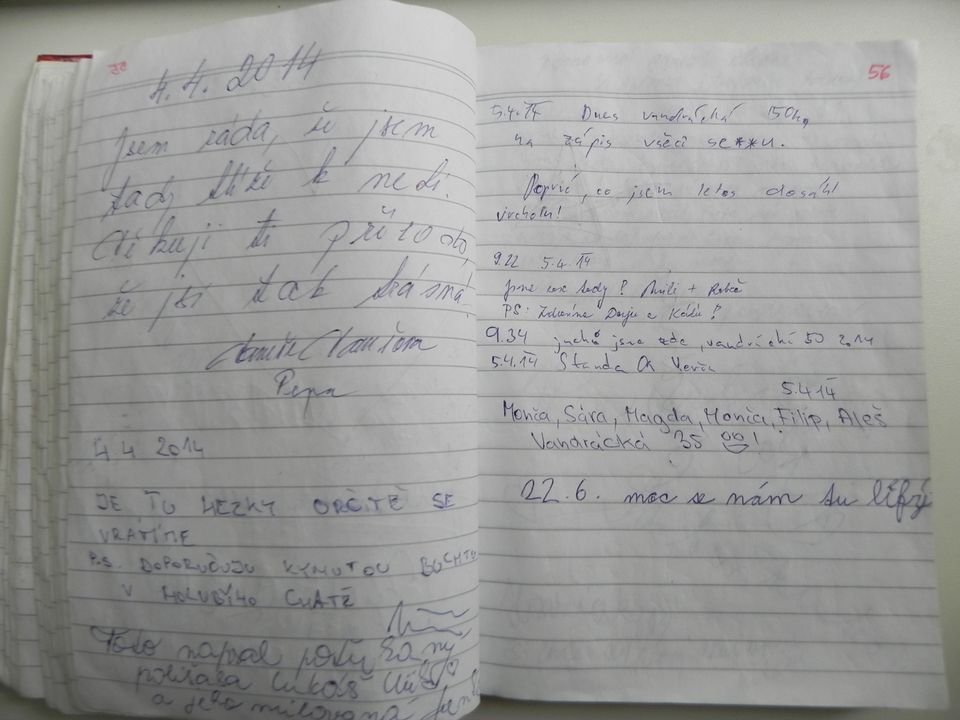 55
4.4.2014
Jsem ráda, že jsem
tady blíže k nebi.
Děkuji ti přírodo,
že jsi tak krásná
Pepa
4.4 2014
JE TU HEZKY URČITĚ SE
VRÁTÍME
P.S. DOPORUČUJU KYNUTOU BUCHTU
V HOLUBÍHO CHATĚ
Toto napsal
Lukáš
a jeho milovaná
56
5.4.14 Dnes vandrácká 50ka,
na zápis všeci se**u.
Poprvé, co jsem letos dosáhl
vrcholu!
9.22 5.4.14
Jsme tady!
PS: Zdravíme a
9.34 juchů jsme zde, vandrácká 50 2014
5.4.14 Standa
5.4.14
Monča, Sára, Magda, Monča, Filip, Aleš
Vandrácká 35 !
22.6. moc se nám tu líbí